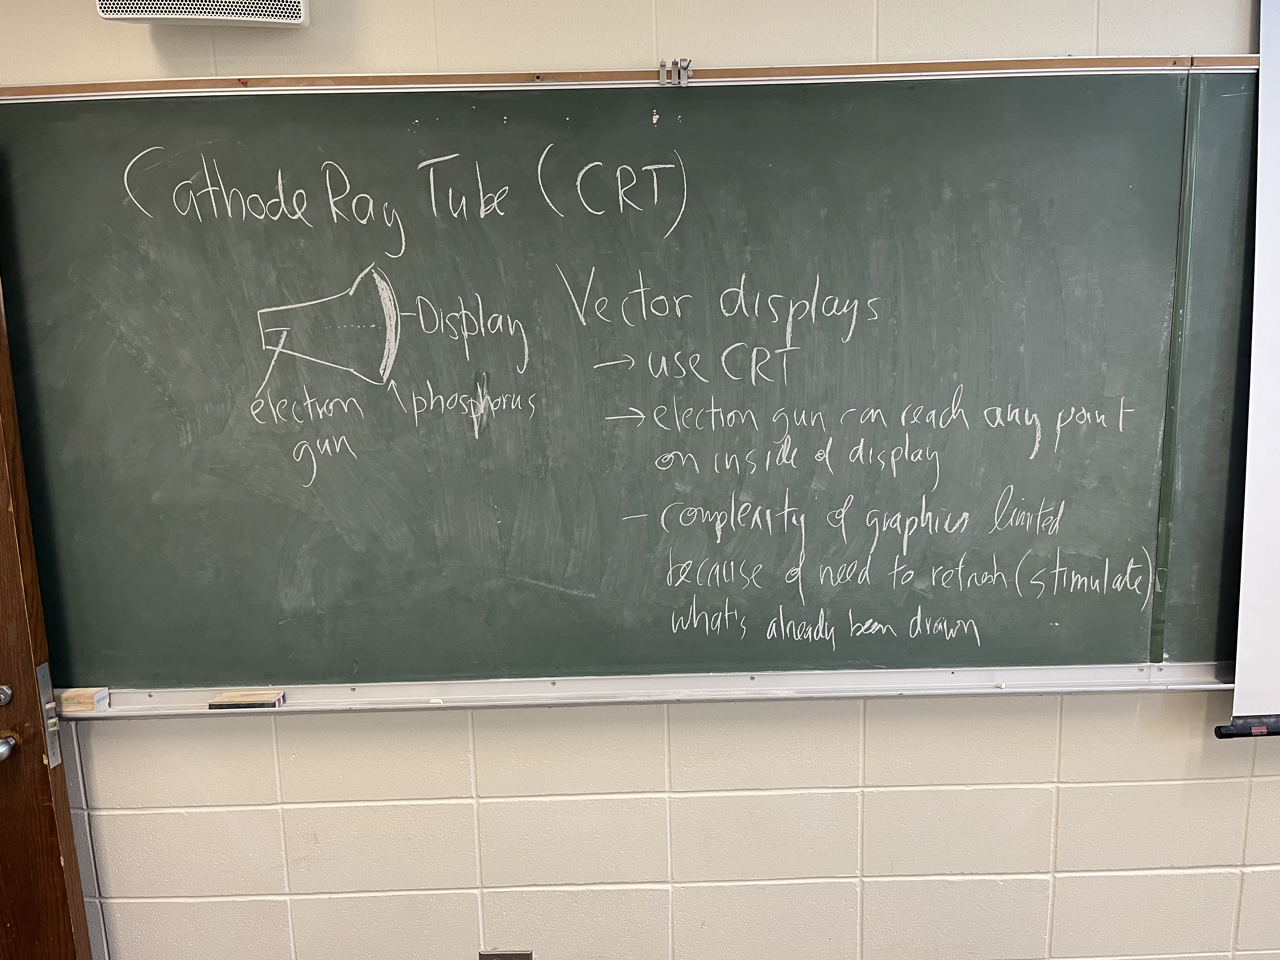 Cathode Ray Tube (CRT)
Display
electron
gun
phosphorus
Vector displays
→ use CRT
→ election gun can reach any point
on inside of display
- complexity of graphics limited
because of need to refresh (stimulate)
what's already been drawn